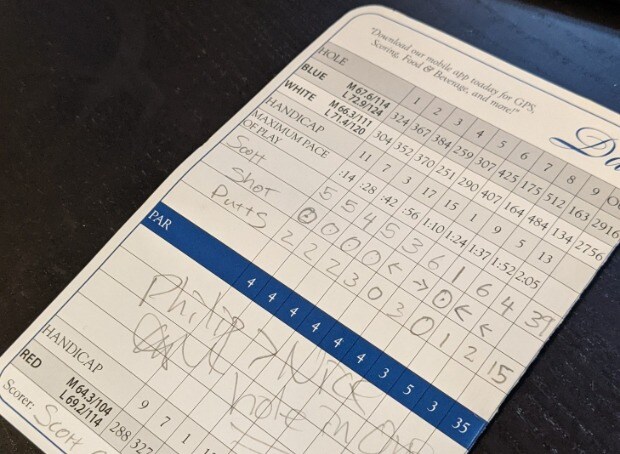 "Download our mobile app toaday for GPS,
Scoring, Food & Beverage, and more!"
Da
HOLE 1 2 3 4 5 6 7 8 9 Ou
BLUE M 67.6/114 L 72.9/124 324 367 384 259 307 425 175 512 163 2916
WHITE M 66.3/111 L 71.4/120 304 352 370 251 290 407 164 484 134 2756
HANDICAP 11 7 3 17 15 1 9 5 13
MAXIMUM PACE OF PLAY :14 :28 :42 :56 1:10 1:24 1:37 1:52 2:05
Scott 5 5 4 5 3 6 1 6 4 39
Shot 0 0 0 0 < → 0 < <
Putts 2 2 2 3 0 3 0 1 2 15
PAR 4 4 4 4 4 4 3 5 3 35
Philip > Nice
hole in one
HANDICAP 9 7 1
RED M 64.3/104 L 69.2/114 288 327
Scorer: Scott